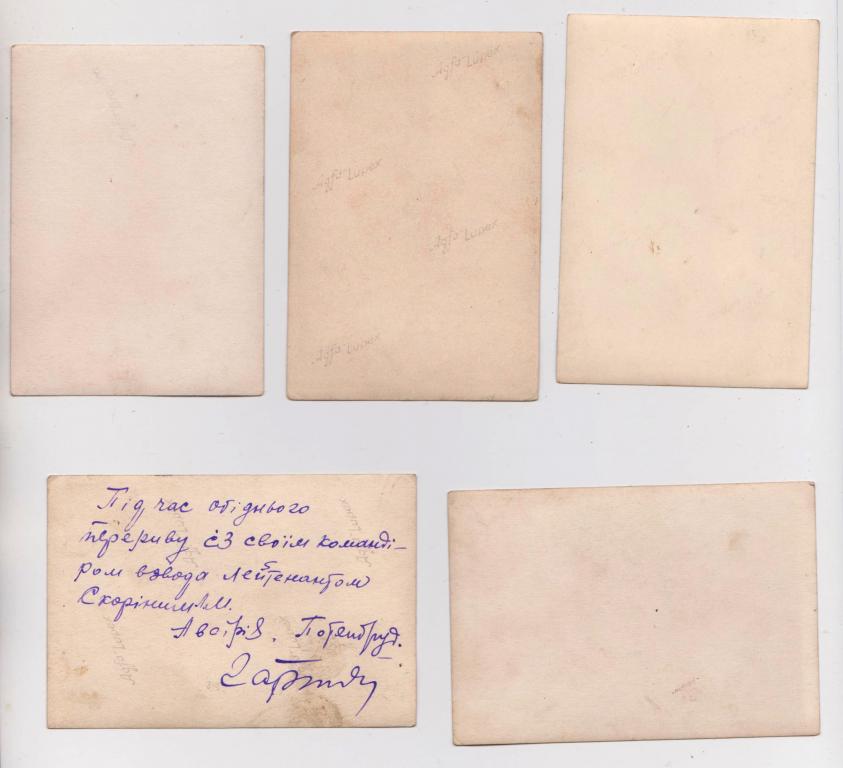 Agfa Lupex
Agfa Lupex
Agfa Lupex
Agfa Lupex
Під час обіднього
перериву сз своїм команді-
ром взвода лейтенантом
Скоріним
Австрія. Потенбруд.
Agfa Lupex